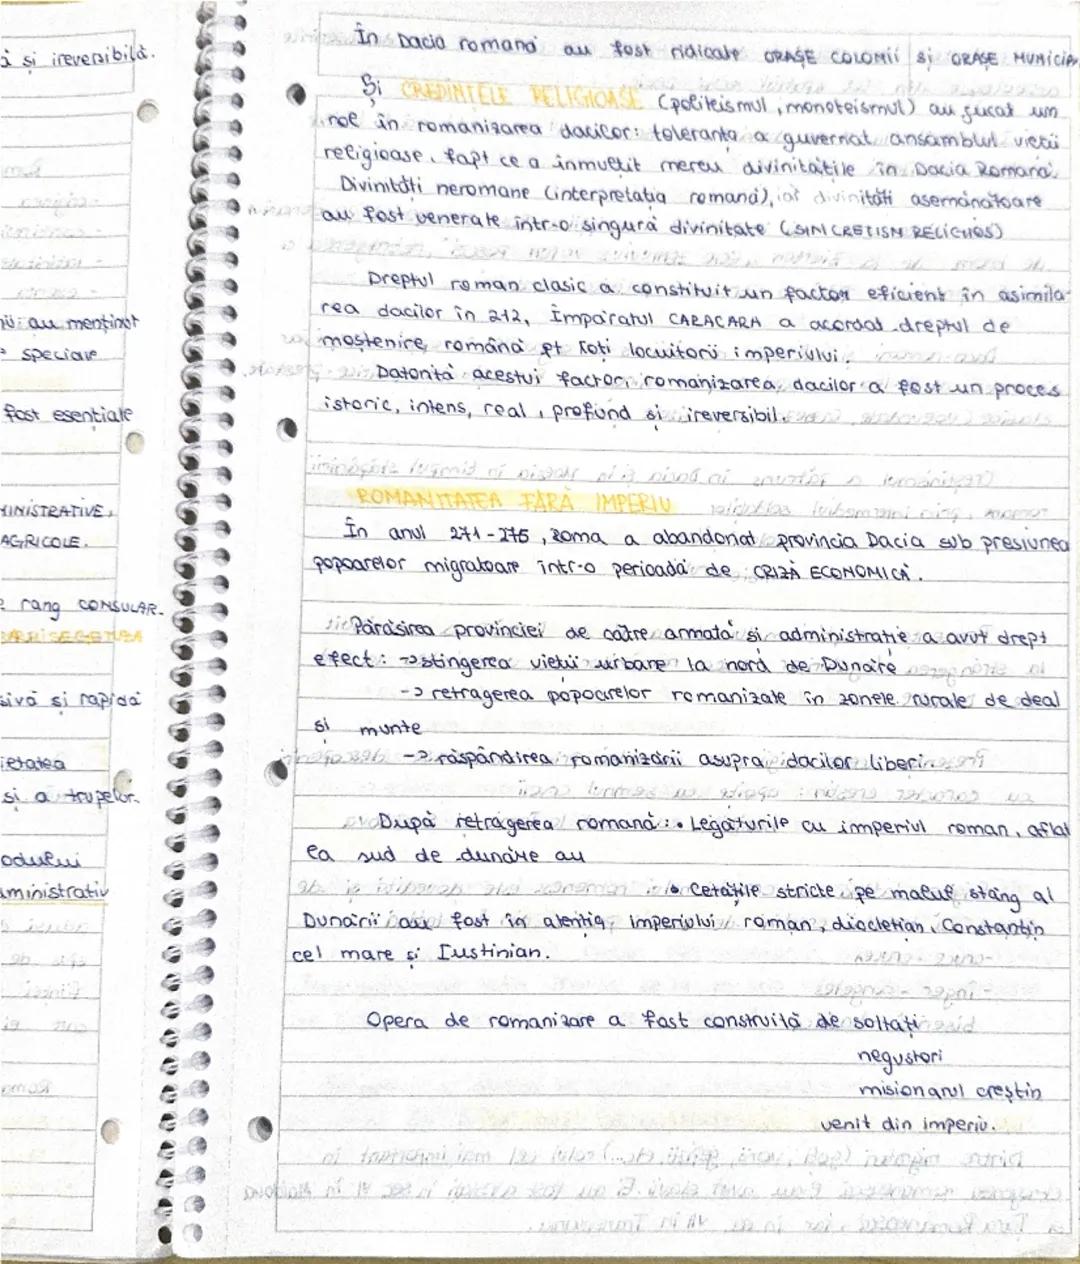 ă și ireversibilă.
au menținut
speciale
fost esențiale
MINISTRATIVE,
AGRICOLE.
rang CONSULAR.
sivă și rapidă
ietatea
și a trupelor.
odului
aministrativ
În Dacia romană au fost ridicate ORAȘE COLONII și ORAȘE MUNICIP
Și CREDINȚELE RELIGIOASE (politeismul, monoteismul) au jucat un
rol în romanizarea dacilor: toleranța a guvernat ansamblul vieții
religioase, fapt ce a înmulțit mereu divinitățile în Dacia Romană.
Divinități neromane (interpretația romană), iar divinități asemănătoare
au fost venerate într-o singură divinitate (SINCRETISM RELIGIOS)
Dreptul roman clasic a constituit un factor eficient în asimila-
rea dacilor în 212, Împăratul CARACARA a acordat dreptul de
moștenire română pt toți locuitorii imperiului.
Datorită acestui factor, romanizarea dacilor a fost un proces
istoric, intens, real, profund și ireversibil.
ROMANITATEA FĂRĂ IMPERIU
În anul 271-275, Roma a abandonat provincia Dacia sub presiunea
popoarelor migratoare într-o perioadă de CRIZĂ ECONOMICĂ.
Părăsirea provinciei de către armată și administrație a avut drept
efect: → stingerea vieții urbane la nord de Dunăre
→ retragerea popoarelor romanizate în zonele rurale de deal
și munte
→ răspândirea romanizării asupra dacilor liberi
După retragerea romană: • Legăturile cu imperiul roman, aflat
la sud de dunăre au
• Cetățile stricte pe malul stâng al
Dunării au fost în atenția imperiului roman, diocletian, Constantin
cel mare și Iustinian.
Opera de romanizare a fost construită de soltați
negustori
misionarul creștin
venit din imperiu.